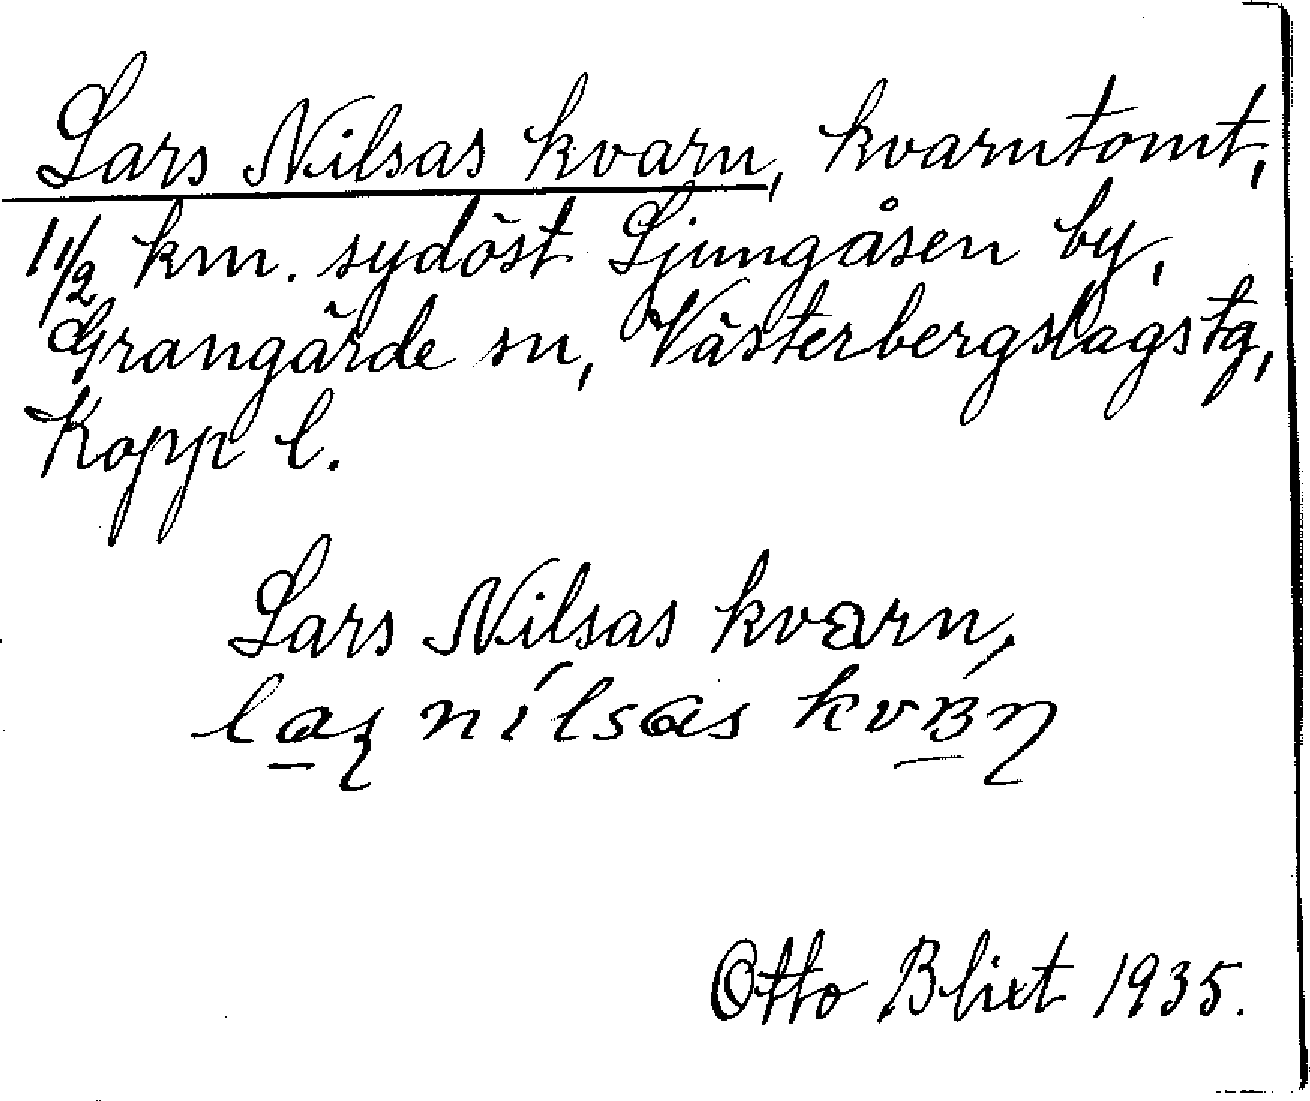 Lars Nilsas kvarn, kvarntomt,
1 1/2 km. sydöst Ljungåsen by,
Grangärde sn, Västerbergslagstg,
Kopp l.
Lars Nilsas kvarn,
nilsas
Otto Blixt 1935.